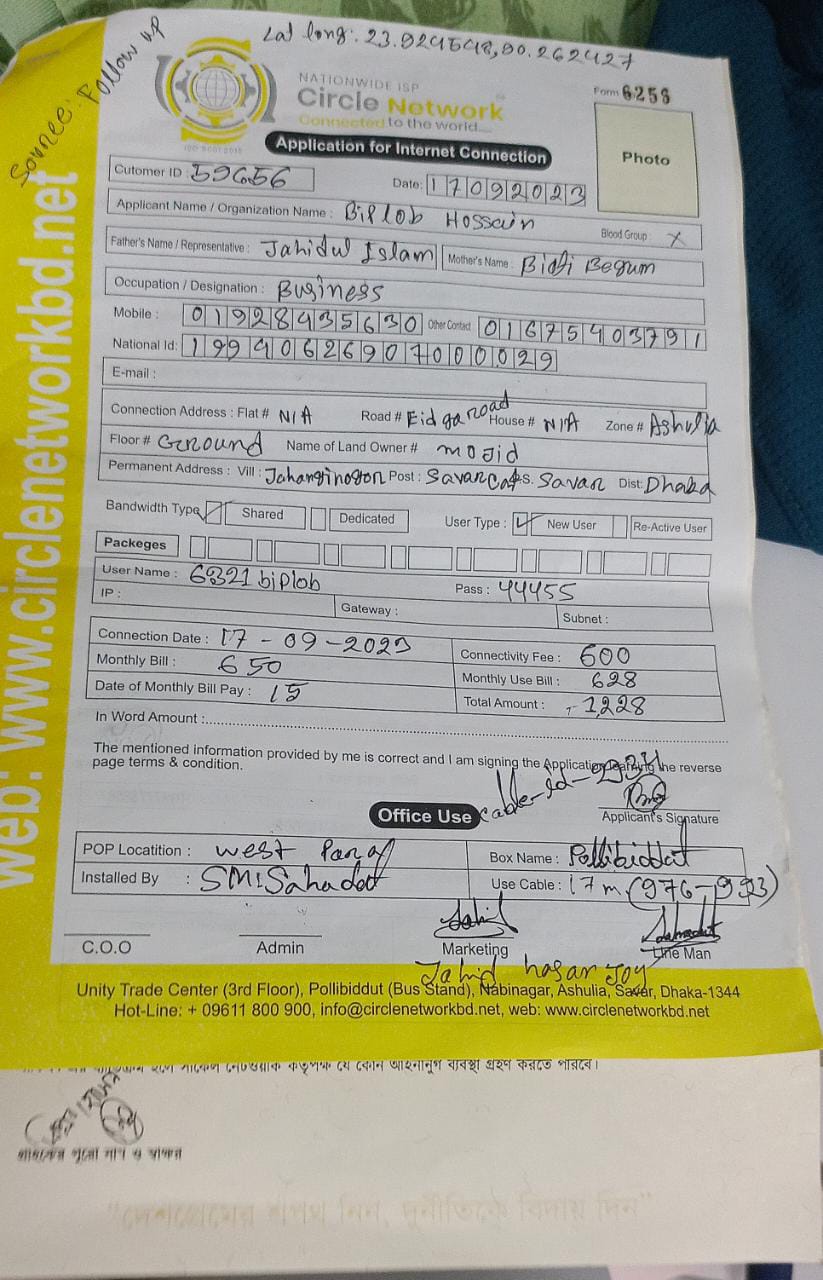 Lat long: 23.924548,90.262427
Source: Follow up
NATIONWIDE ISP
Circle Network
Connected to the world....
ISO 9001:2015
Form 6258
Application for Internet Connection
Photo
Cutomer ID : 59656
Date: 17092023
Applicant Name / Organization Name : Biplob Hossain
Blood Group: X
Father's Name / Representative : Jahidul Islam Mother's Name : Bidi Begum
Occupation / Designation : Business
Mobile : 01928435630 Other Contact 01675403791
National Id: 19940626907000029
E-mail :
Connection Address : Flat # N/A Road # Eidga road House # N/A Zone # Ashulia
Floor # Ground Name of Land Owner # mojid
Permanent Address : Vill : Jahanginogon Post : Savar P.S. Savar Dist: Dhaka
Bandwidth Type ✓ Shared Dedicated User Type : ✓ New User Re-Active User
Packeges
User Name : 6321 biplob Pass : 44455
IP : Gateway : Subnet :
Connection Date : 17-09-2023 Connectivity Fee : 600
Monthly Bill : 650 Monthly Use Bill : 628
Date of Monthly Bill Pay : 15 Total Amount : 1228
In Word Amount :
The mentioned information provided by me is correct and I am signing the Application the reverse
page terms & condition.
cable-id-
Office Use
Applicant's Signature
POP Locatition : west Box Name : Pollibiddut
Installed By : SM:Sahadat Use Cable : 17m (976-993)
C.O.O Admin Marketing Line Man
Jahid hasan Joy
Unity Trade Center (3rd Floor), Pollibiddut (Bus Stand), Nabinagar, Ashulia, Savar, Dhaka-1344
Hot-Line: + 09611 800 900, info@circlenetworkbd.net, web: www.circlenetworkbd.net
web: www.circlenetworkbd.net
কর্তৃপক্ষ যে কোন আইনানুগ ব্যবস্থা গ্রহণ করতে পারবে।
গ্রাহকের পুরো নাম ও স্বাক্ষর
"দেশপ্রেমের শপথ নিন, দুর্নীতিকে বিদায় দিন"